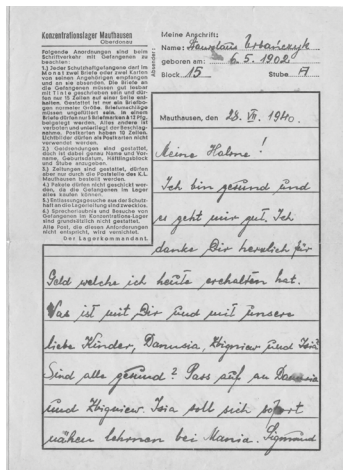 Konzentrationslager Mauthausen
Oberdonau
Folgende Anordnungen sind beim
Schriftverkehr mit Gefangenen zu
beachten:
1.) Jeder Schutzhaftgefangene darf im
Monat zwei Briefe oder zwei Karten
von seinen Angehörigen empfangen
und an sie absenden. Die Briefe an
die Gefangenen müssen gut lesbar
mit Tinte geschrieben sein und dür-
fen nur 15 Zeilen auf einer Seite ent-
halten. Gestattet ist nur ein Briefbo-
gen normaler Größe. Briefumschläge
müssen ungefüttert sein. In einem
Briefe dürfen nur 5 Briefmarken à 12 Pfg.
beigelegt werden. Alles andere ist
verboten und unterliegt der Beschlag-
nahme. Postkarten haben 10 Zeilen.
Lichtbilder dürfen als Postkarten nicht
verwendet werden.
2.) Geldsendungen sind gestattet,
doch ist dabei genau Name und Vor-
name, Geburtsdatum, Häftlingsblock
und Stube anzugeben.
3.) Zeitungen sind gestattet, dürfen
aber nur durch die Poststelle des K.L.
Mauthausen bestellt werden.
4.) Pakete dürfen nicht geschickt wer-
den, da die Gefangenen im Lager
alles kaufen können.
5.) Entlassungsgesuche aus der Schutz-
haft an die Lagerleitung sind zwecklos.
6.) Sprecherlaubnis und Besuche von
Gefangenen im Konzentrations-Lager
sind grundsätzlich nicht gestattet.
Alle Post, die diesen Anforderungen
nicht entspricht, wird vernichtet.
Der Lagerkommandant.
Meine Anschrift:
Name:
geboren am: 6.5.1902
Block 15 Stube A
Mauthausen, den 28. VII. 1940.
Meine Halme!
Ich bin gesund und
es geht mir gut. Ich
danke Dir herzlich für
Geld welche ich heute erchalten hat.
Was ist mit Dir und mit unsere
liebe Kinder, Danusia, Zbigniew und
Sind alle gesund? Pass auf an Danusia
und Zbigniew. Isia soll sich sofort
nähen lehrnen bei Mania. Sigmund